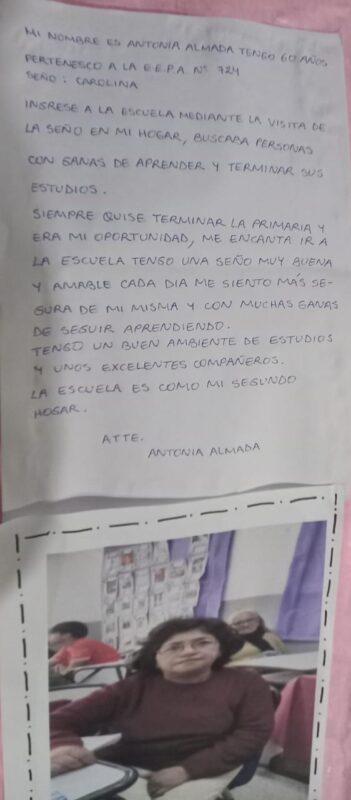 MI NOMBRE ES ANTONIA ALMADA TENGO 60 AÑOS
PERTENESCO A LA E.E.P.A Nº 724
SEÑO: CAROLINA
INGRESE A LA ESCUELA MEDIANTE LA VISITA DE
LA SEÑO EN MI HOGAR, BUSCABA PERSONAS
CON GANAS DE APRENDER Y TERMINAR SUS
ESTUDIOS.
SIEMPRE QUISE TERMINAR LA PRIMARIA Y
ERA MI OPORTUNIDAD, ME ENCANTA IR A
LA ESCUELA TENGO UNA SEÑO MUY BUENA
Y AMABLE CADA DIA ME SIENTO MÁS SE-
GURA DE MI MISMA Y CON MUCHAS GANAS
DE SEGUIR APRENDIENDO.
TENGO UN BUEN AMBIENTE DE ESTUDIOS
Y UNOS EXCELENTES COMPAÑEROS.
LA ESCUELA ES COMO MI SEGUNDO
HOGAR.
ATTE.
ANTONIA ALMADA